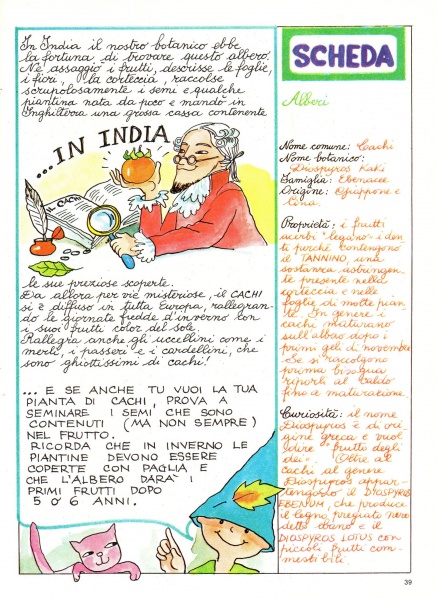 In India il nostro botanico ebbe
la fortuna di trovare questo albero.
Ne assaggiò i frutti, descrisse le foglie,
i fiori, la corteccia, raccolse
scrupolosamente i semi e qualche
piantina nata da poco e mandò in
Inghilterra una grossa cassa contenente
...IN INDIA
IL CACHI
le sue preziose scoperte.
Da allora per vie misteriose, il CACHI
si è diffuso in tutta Europa, rallegran-
do le giornate fredde d'inverno con
i suoi frutti color del sole.
Rallegra anche gli uccellini come i
merli, i passeri e i cardellini, che
sono ghiottissimi di cachi!
... E SE ANCHE TU VUOI LA TUA
PIANTA DI CACHI, PROVA A
SEMINARE I SEMI CHE SONO
CONTENUTI (MA NON SEMPRE)
NEL FRUTTO.
RICORDA CHE IN INVERNO LE
PIANTINE DEVONO ESSERE
COPERTE CON PAGLIA E
CHE L'ALBERO DARA' I
PRIMI FRUTTI DOPO
5 o 6 ANNI.
SCHEDA
Alberi
Nome comune: Cachi
Nome botanico:
Diospyros Kaki
Famiglia: Ebenacee
Origine: Giappone e
Cina.
Proprietà: i frutti
acerbi "legano" i den
ti perché contengono
il TANNINO, una
sostanza astringen.
te presente nella
corteccia e nelle
foglie di molte pian
te. In genere i
cachi maturano
sull'albero dopo i
primi geli di novembre
Se si raccolgono
prima bisogna
riporli al caldo
fino a maturazione.
Curiosità: il nome
Diospyros è di ori
gine greca e vuol
dire "frutto degli
dei". Oltre al
cachi al genere
Diospyros appar-
tengono il DIOSPYROS
EBENUM, che produce
il legno pregiato nero
detto ebano e il
DIOSPYROS LOTUS con
piccoli frutti com-
mestibili.
39